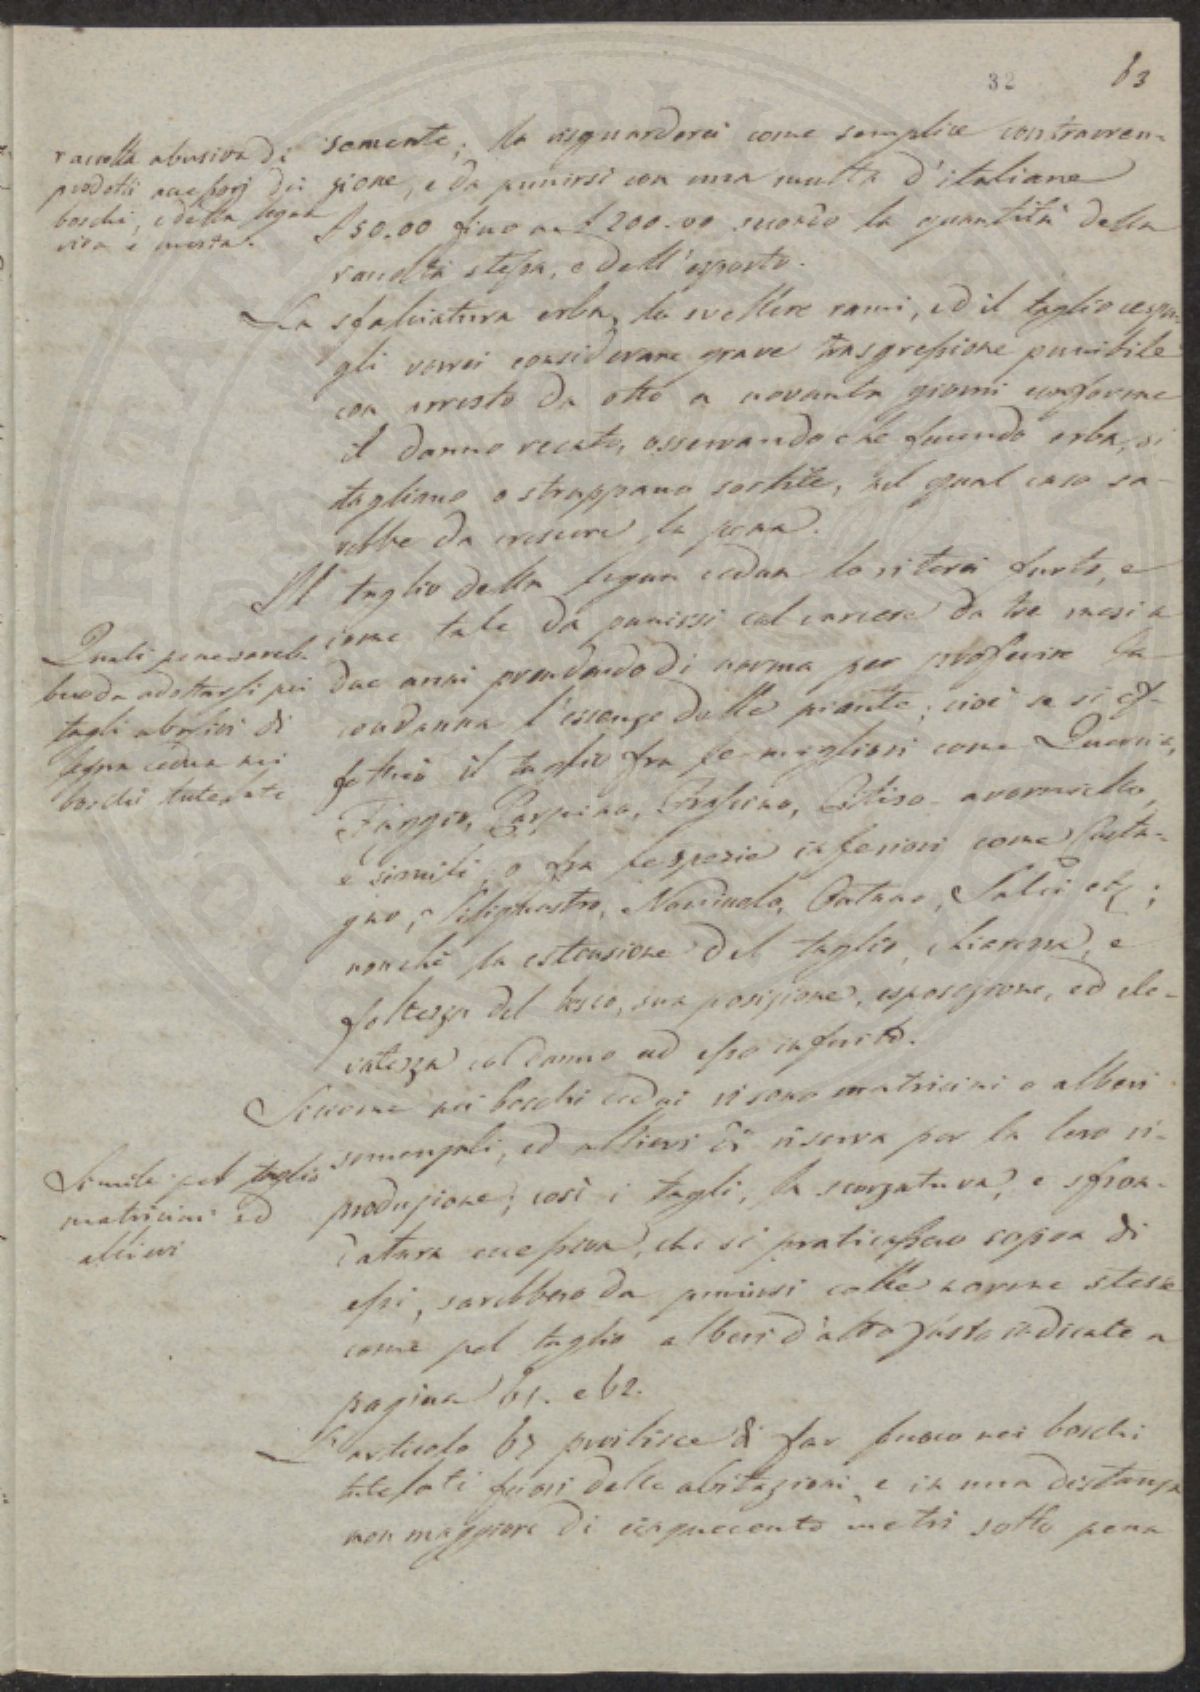 32 63
raccolta abusiva di
prodotti accessorj dei
boschi, e della legna
viva e morta.
somente; la risguarderei come semplice contravven-
zione, e da punirsi con una multa d'italiane
£ 50.00 fino a £ 200.00 secondo la quantità della
raccolta stessa, e dell'esporto.
La sfalciatura erba, lo svellere rami, ed il taglio cespu-
gli vorrei considerare grave trasgressione punibile
con arresto da otto a novanta giorni conforme
il danno recato, osservando che facendo erba, si
tagliano o strappano sortite, nel qual caso sa-
rebbe da crescere la pena.
Il taglio della legna cedua lo riterei furto, e
come tale da punirsi col carcere da tre mesi a
due anni prendendo di norma per proferire la
condanna l'essenze delle piante; cioè se si ef-
fettuò il taglio fra le migliori come Quercia,
Faggio, Carpino, Frassino, Citiso-avorniello,
e simili, o fra le spezie inferiori come Casta-
gno, Noccinola, Ontano, Salci etc;
nonchè la estensione del taglio, chiarezza, e
foltezza del bosco, sua posizione, esposizione, ed ele-
vatezza col danno ad esso inferito.
Quali pene sareb-
bero da adottarsi pei
tagli abusivi di
legna cedua nei
boschi tutelati
Siccome nei boschi cedui vi sono matricini o alberi
semenzali, ed allievi di riserva per la loro ri-
produzione; così i tagli, la scorzatura, e sfron-
datura eccessiva, che si praticassero sopra di
essi, sarebbero da punirsi colle norme stesse
come pel taglio alberi d'alto fusto indicate a
pagina 61. e 62.
Simile pel taglio
matricini ed
allievi
L'articolo 67 proibisce di far fuoco nei boschi
tutelati fuori delle abitazioni, e in una distanza
non maggiore di cinquecento metri sotto pena